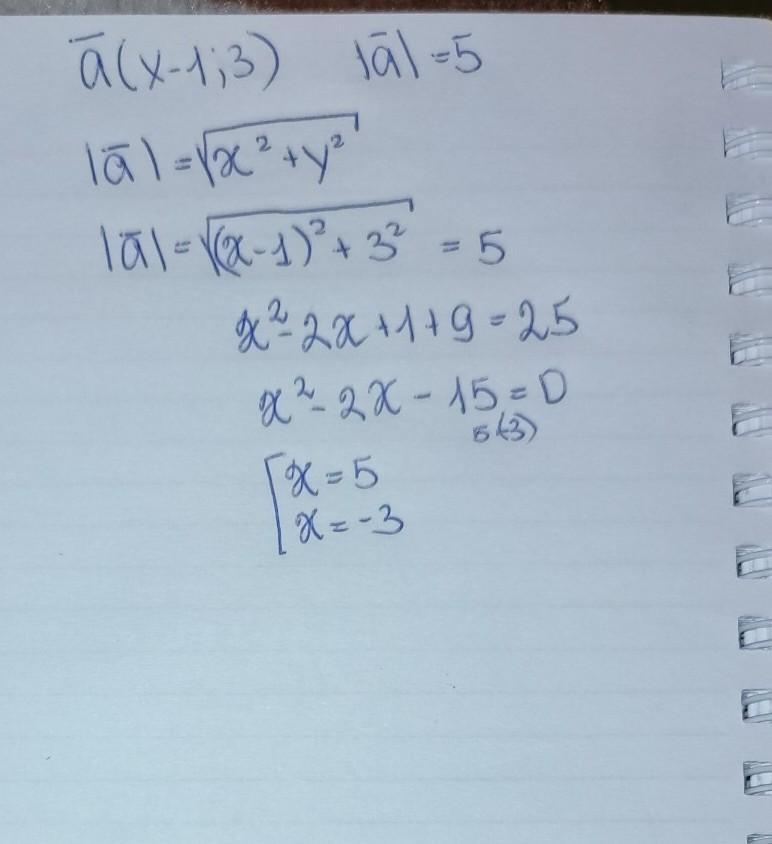 a̅(x-1;3) |a̅|=5
|a̅|=√(x²+y²)
|a̅|=√((x-1)²+3²) = 5
x²-2x+1+9=25
x²-2x-15=0
5(-3)
[x=5
x=-3